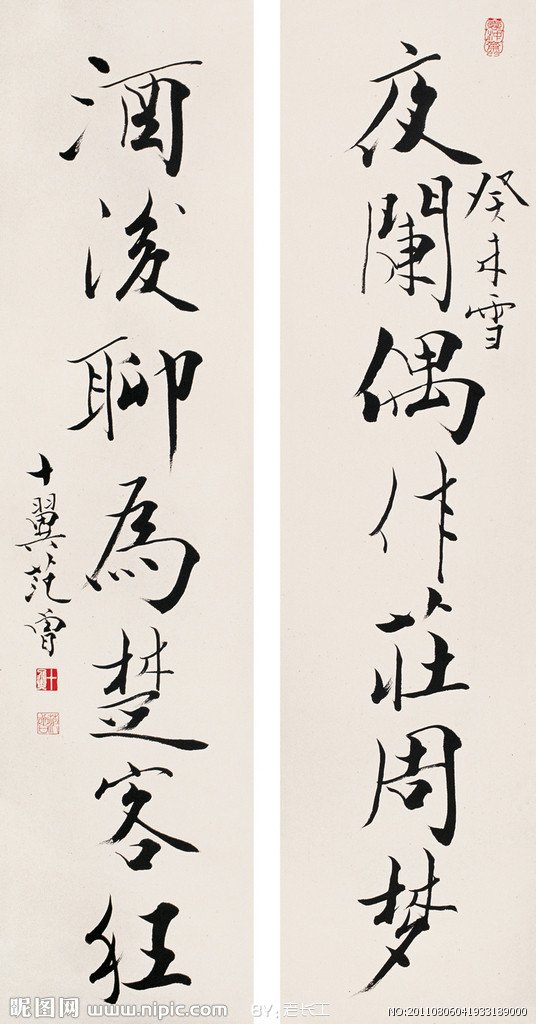 夜闌偶作莊周梦
癸未雪
酒後聊為楚客狂
十翼范曾
昵图网 www.nipic.com
BY: 老长工
NO:20110806041933189000